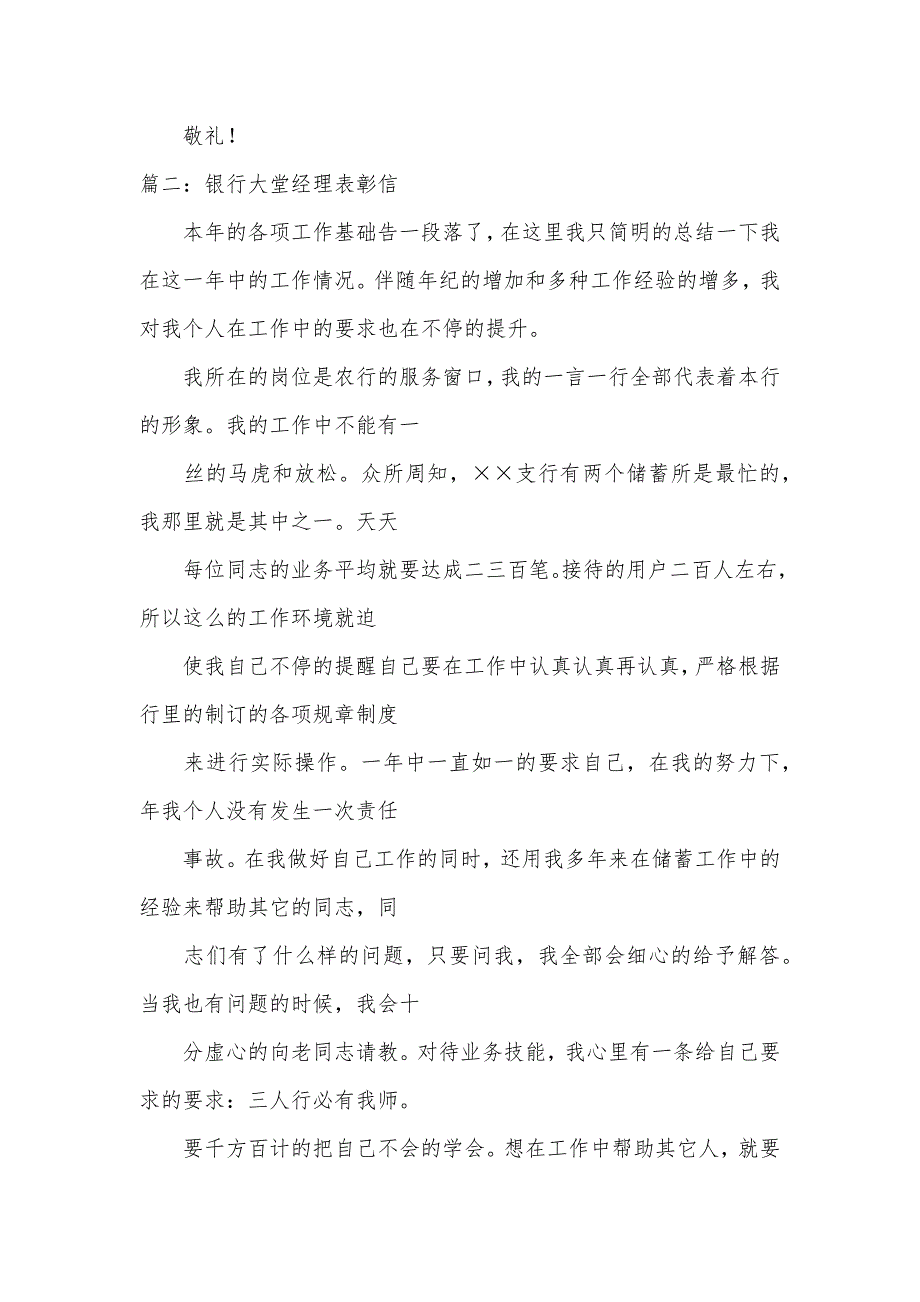 敬礼！
篇二：银行大堂经理表彰信
本年的各项工作基础告一段落了，在这里我只简明的总结一下我
在这一年中的工作情况。伴随年纪的增加和多种工作经验的增多，我
对我个人在工作中的要求也在不停的提升。
我所在的岗位是农行的服务窗口，我的一言一行全部代表着本行
的形象。我的工作中不能有一
丝的马虎和放松。众所周知，××支行有两个储蓄所是最忙的，
我那里就是其中之一。天天
每位同志的业务平均就要达成二三百笔。接待的用户二百人左右，
所以这么的工作环境就迫
使我自己不停的提醒自己要在工作中认真认真再认真，严格根据
行里的制订的各项规章制度
来进行实际操作。一年中一直如一的要求自己，在我的努力下，
年我个人没有发生一次责任
事故。在我做好自己工作的同时，还用我多年来在储蓄工作中的
经验来帮助其它的同志，同
志们有了什么样的问题，只要问我，我全部会细心的给予解答。
当我也有问题的时候，我会十
分虚心的向老同志请教。对待业务技能，我心里有一条给自己要
求的要求：三人行必有我师。
要千方百计的把自己不会的学会。想在工作中帮助其它人，就要